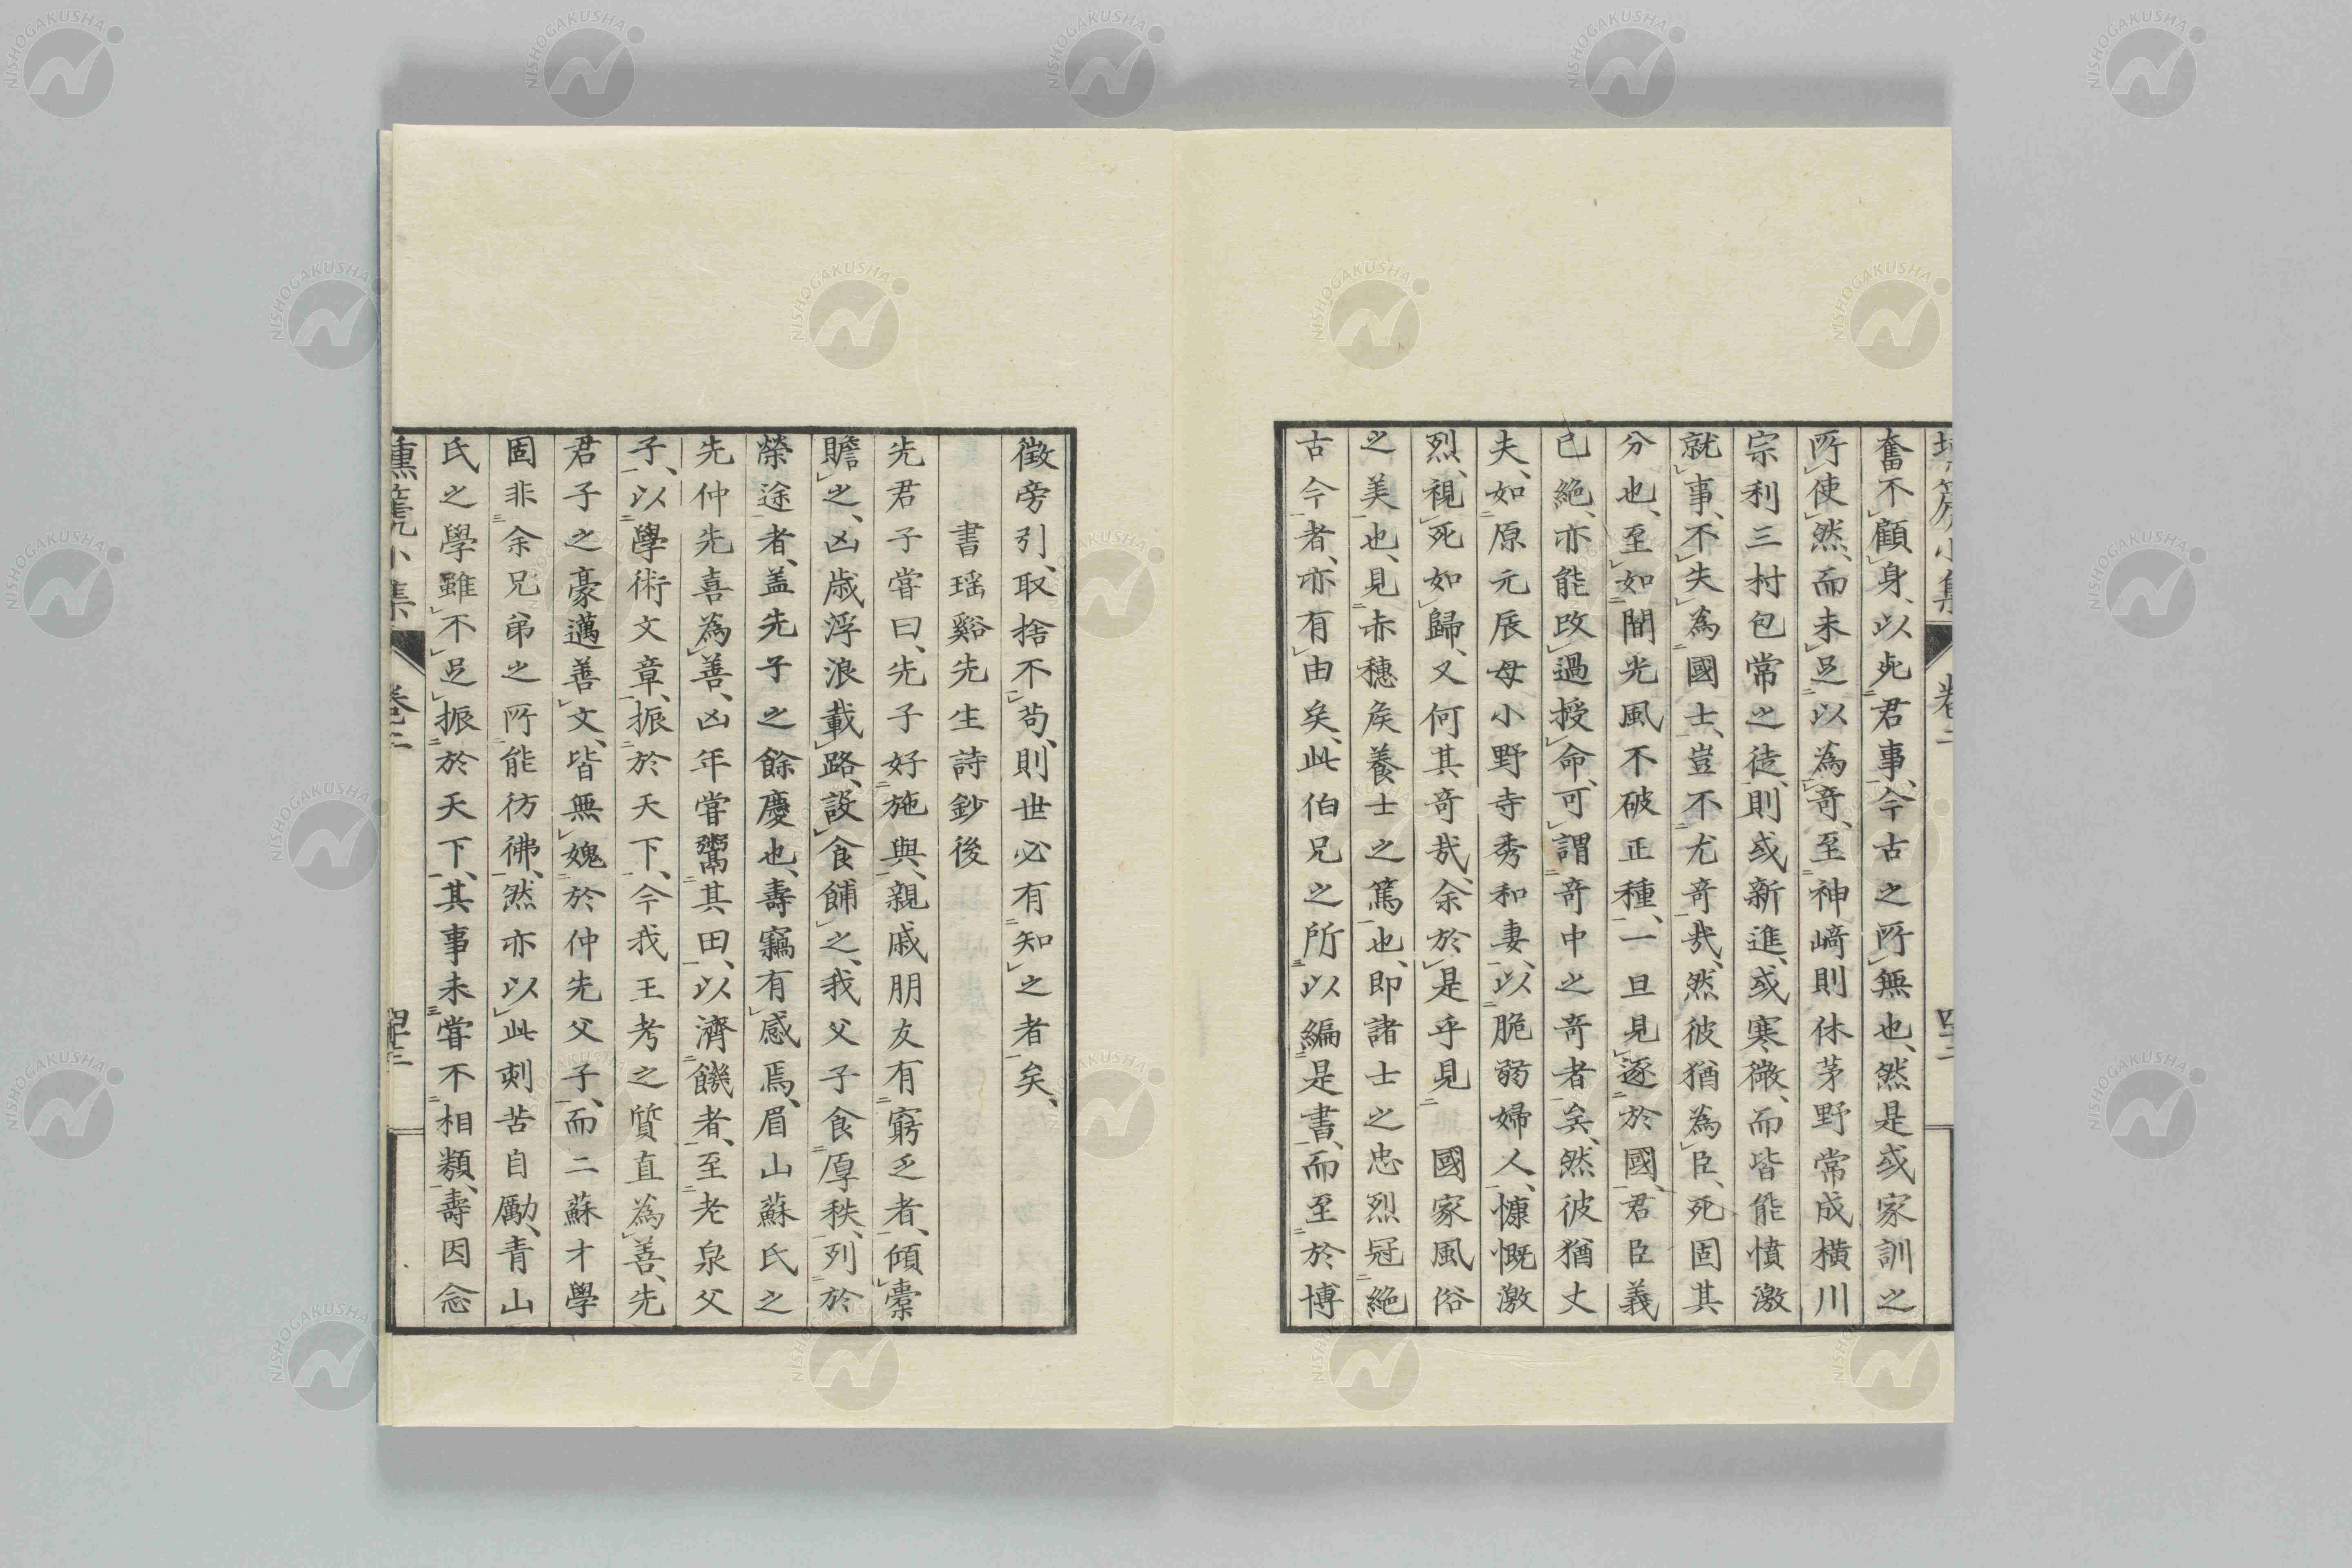 奮不顧身、以死君事、今古之所無也、然是或家訓之
所使然、而未足以為奇、至神﨑則休茅野常成橫川
宗利三村包常之徒、則或新進、或寒微、而皆能憤激
就事、不失為國士、豈不尤奇哉、然彼猶為臣、死固其
分也、至如間光風不破正種、一旦見逐於國、君臣義
已絕、亦能改過授命、可謂奇中之奇者矣、然彼猶丈
夫、如原元辰母小野寺秀和妻、以脆弱婦人、慷慨激
烈、視死如歸、又何其奇哉、余於是乎見　國家風俗
之美也、見赤穗矦養士之篤也、即諸士之忠烈冠絕
古今者、亦有由矣、此伯兄之所以編是書、而至於博
徵旁引、取捨不苟、則世必有知之者矣、
書瑶谿先生詩鈔後
先君子嘗曰、先子好施與、親戚朋友有窮乏者、傾橐
贍之、凶歲浮浪載路、設食餔之、我父子食厚秩、列於
榮途者、蓋先子之餘慶也、壽竊有感焉、眉山蘇氏之
先仲先喜為善、凶年嘗鬻其田、以濟饑者、至老泉父
子、以學術文章、振於天下、今我王考之質直為善、先
君子之豪邁善文、皆無媿於仲先父子、而二蘇才學
固非余兄弟之所能彷彿、然亦以此刻苦自勵、青山
氏之學雖不足振於天下、其事未嘗不相類、壽因念
壎篪小集　卷二　四十二